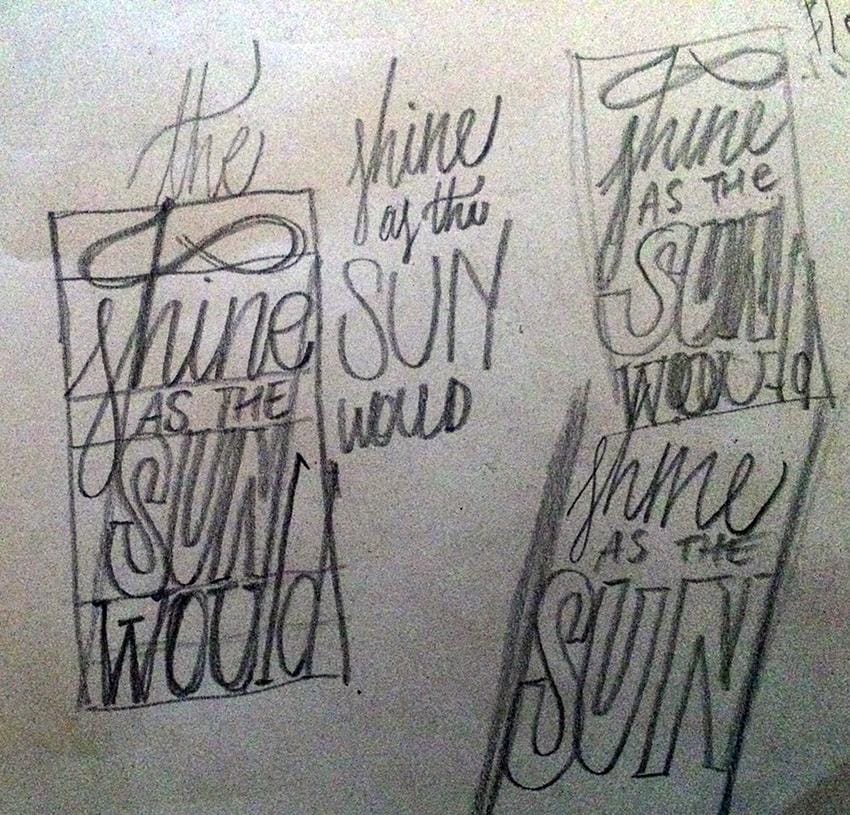 the
shine
AS THE
SUN
Would
shine
as the
SUN
would
shine
AS THE
SUN
Would
shine
AS THE
SUN